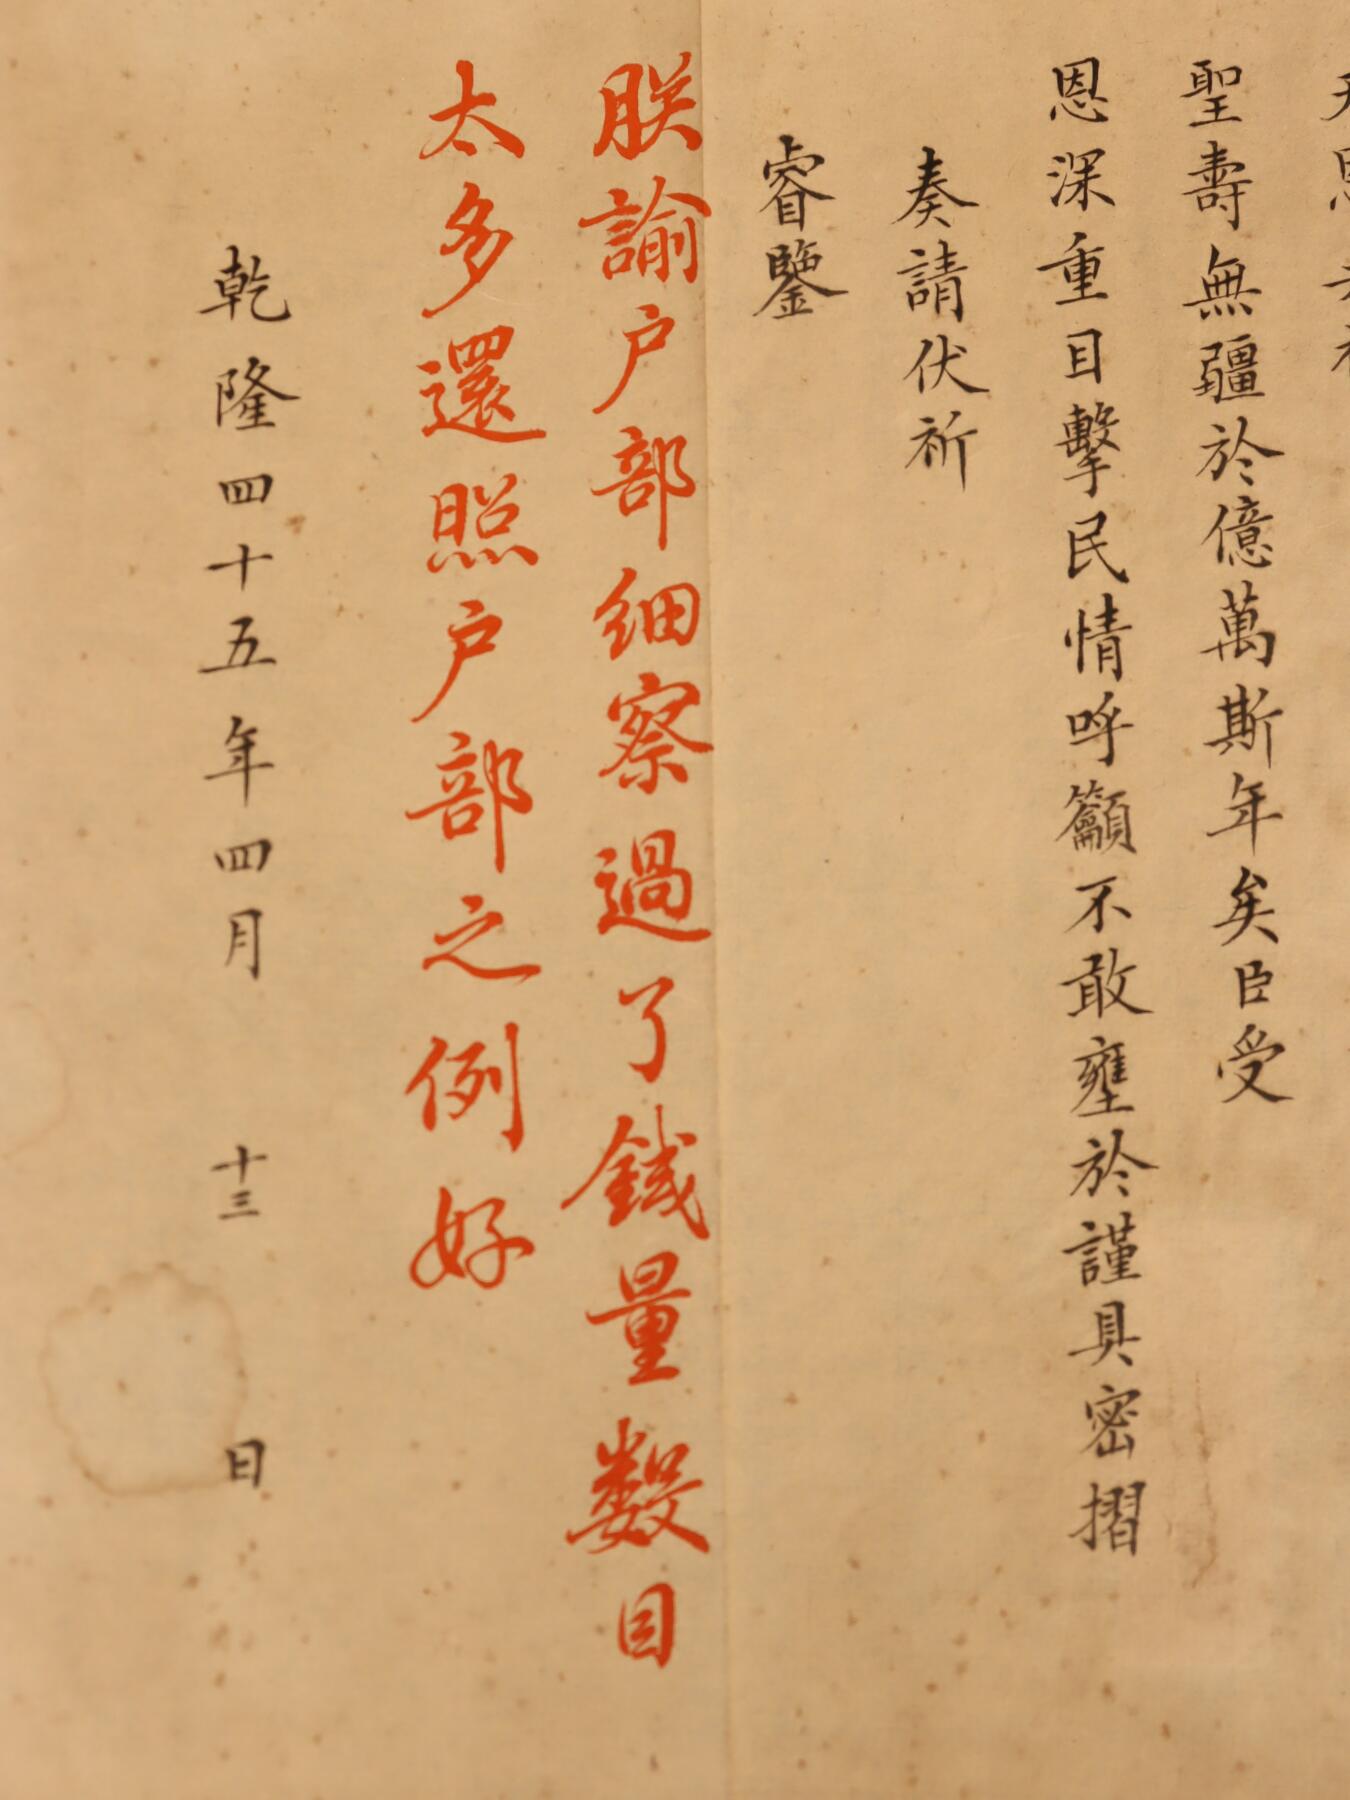 聖壽無疆於億萬斯年矣臣受
恩深重目擊民情呼籲不敢壅於謹具密摺
奏請伏祈
睿鑒
朕諭户部細察過了錢量數目
太多還照户部之例好
乾隆四十五年四月十三日